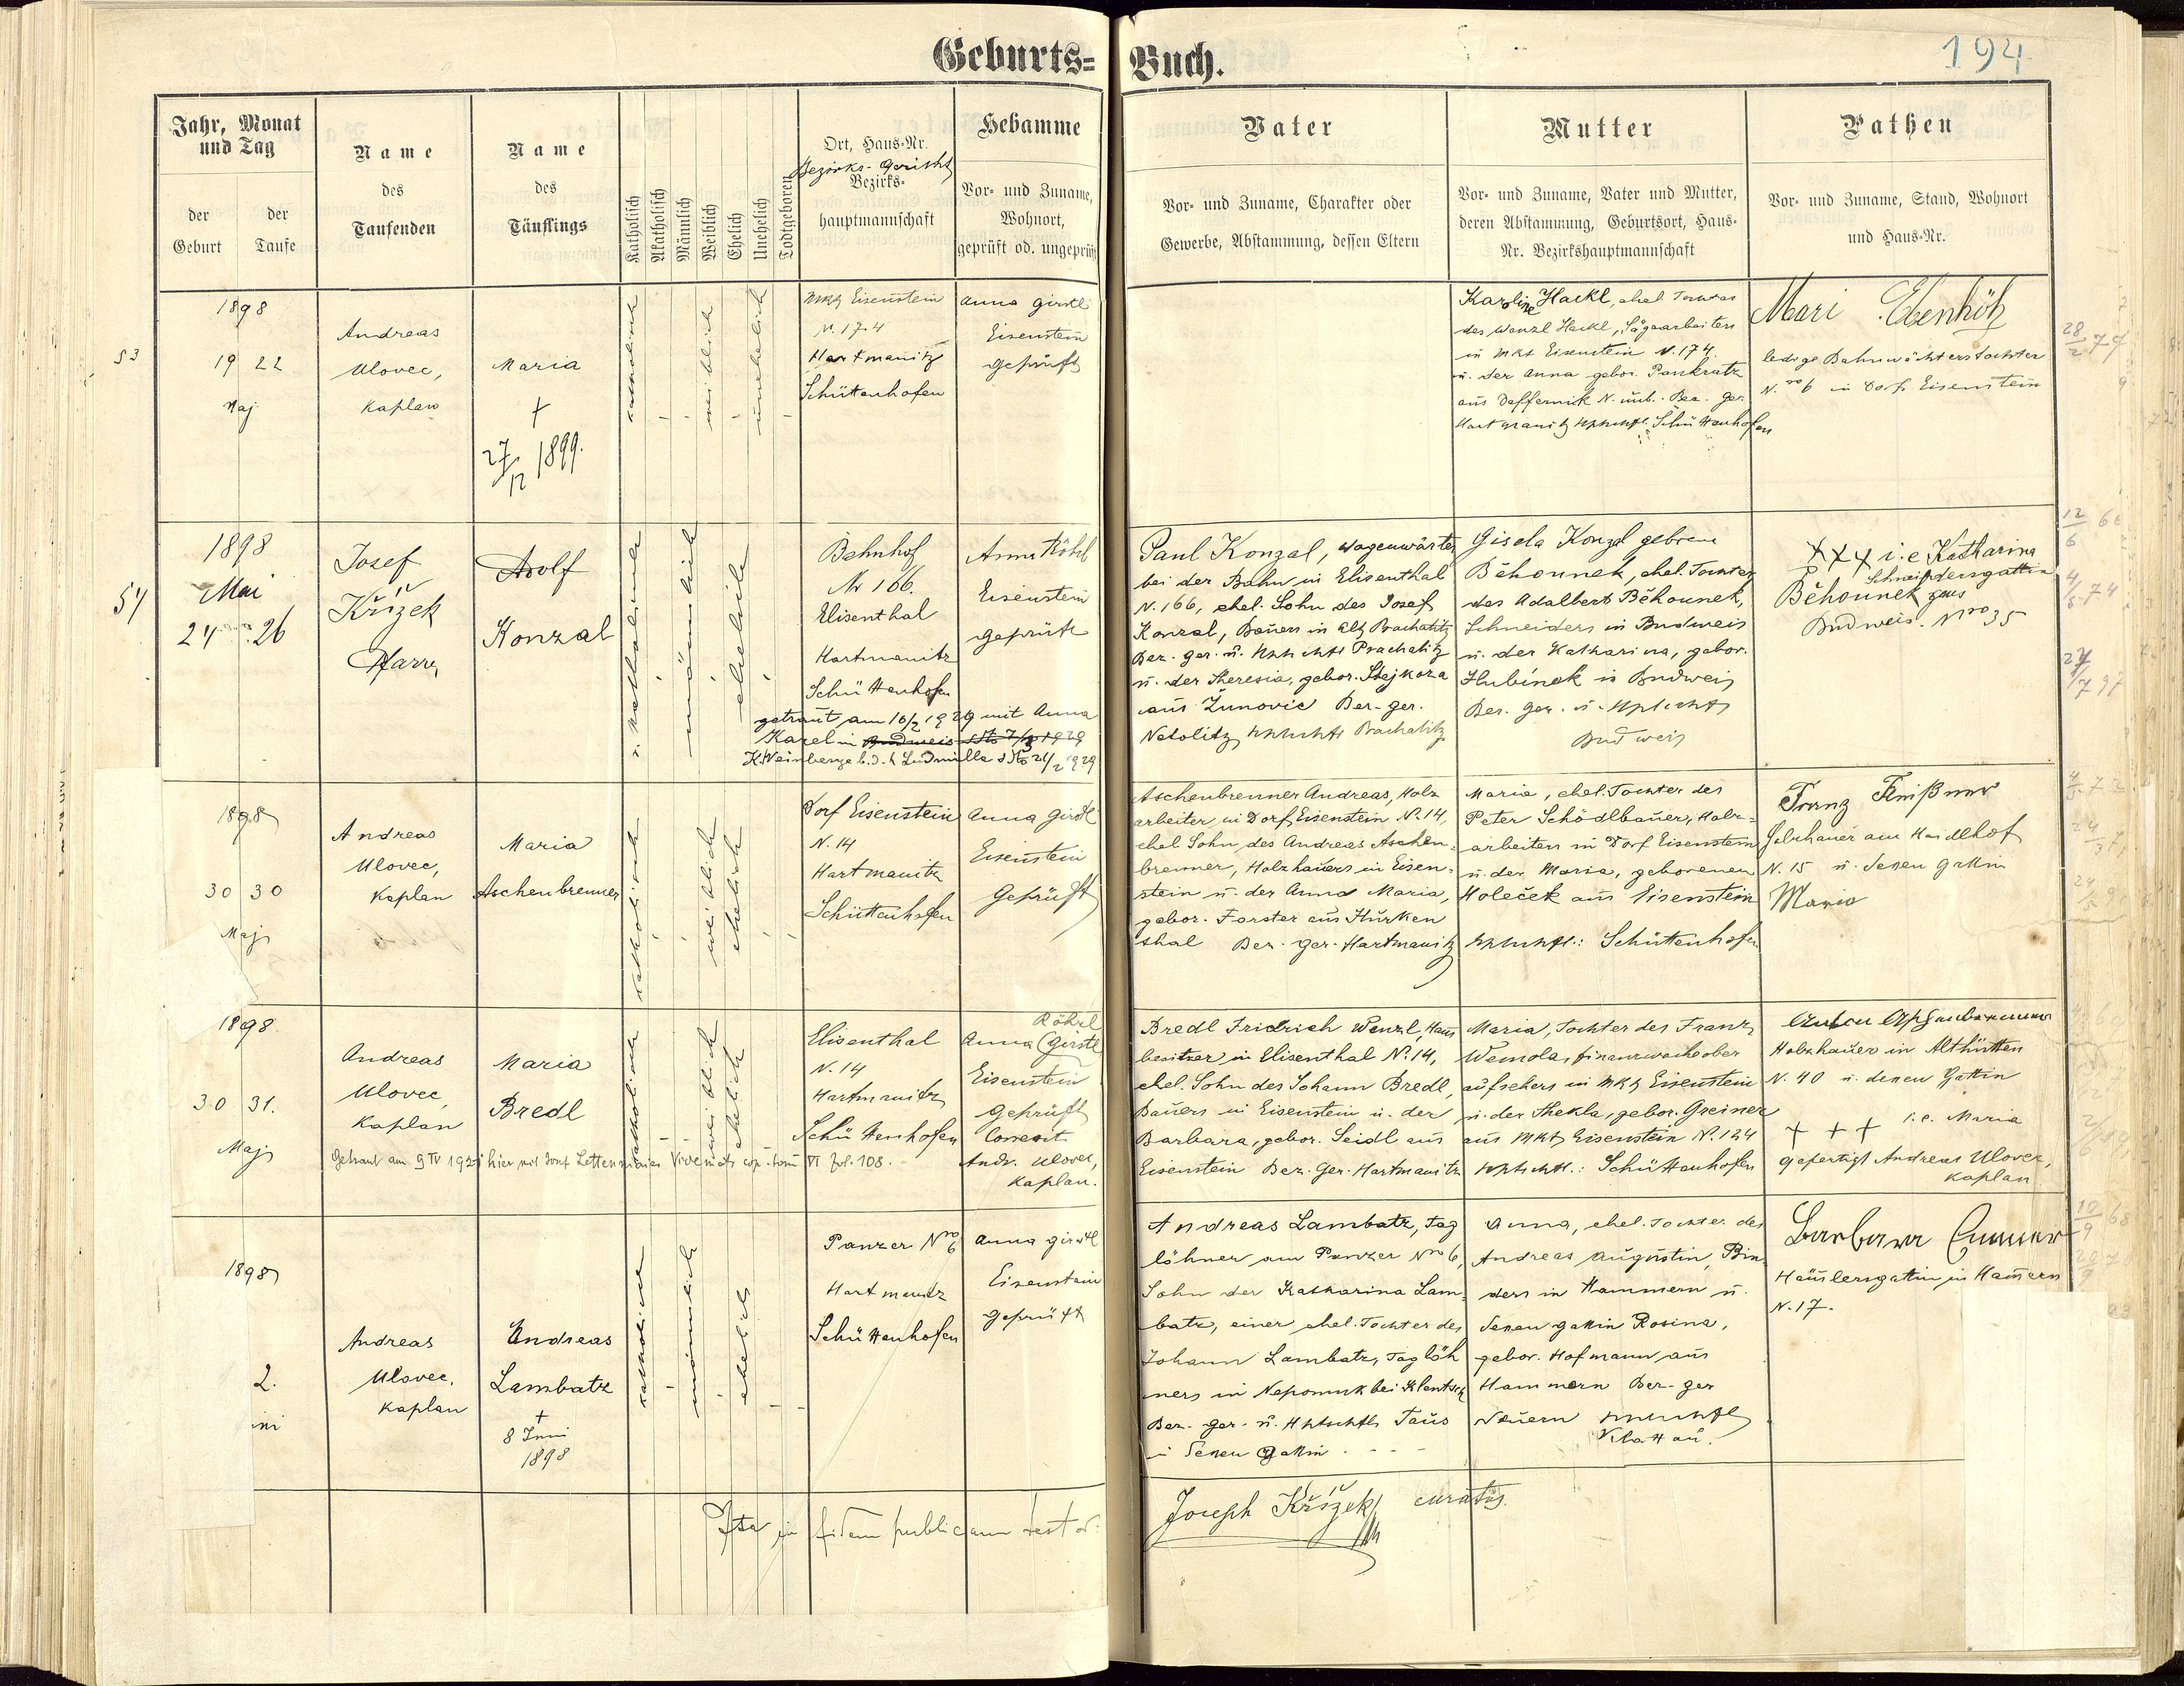 Geburts= Buch.
194
Jahr, Monat
und Tag
der
Geburt
der
Taufe
Name
des
Taufenden
Name
des
Täuflings
Katholisch
Akatholisch
Männlich
Weiblich
Ehelich
Unehelich
Todtgeboren
Ort, Haus=Nr.
Bezirks-Gericht
Bezirks=
hauptmannschaft
Hebamme
Vor= und Zuname,
Wohnort,
geprüft od. ungeprüft
Vater
Vor= und Zuname, Charakter oder
Gewerbe, Abstammung, dessen Eltern
Mutter
Vor= und Zuname, Vater und Mutter,
deren Abstammung, Geburtsort, Haus=
Nr. Bezirkshauptmannschaft
Pathen
Vor= und Zuname, Stand, Wohnort
und Haus=Nr.
53
1898
19 22
Maj
Andreas
Ulovec,
Kaplan
Maria
+
27/12 1899.
katholisch
weiblich
unehelich
Mkt Eisenstein
N. 174
Hartmanitz
Schüttenhofen
Anna Girstl
Eisenstein
geprüft
Karoline Hackl, ehel. Tochter
des Wenzl Hackl, Sägearbeiters
in Mkt Eisenstein N. 174.
u. der Anna gebor. Pankratz
aus Deffernik N. unb. Bez. Ger.
Hartmanitz Schüttenhofen
Mari Ebenhöh
ledige Bahnwächterstochter
N.ro 6 in Dorf Eisenstein
54
1898
Mai
24 26
Josef
Křížek
Pfarrer
Adolf
Konzal
männlich
eheliche
Bahnhof
Nr 166.
Elisenthal
Hartmanitz
Schüttenhofen
Anna Röhrl
Eisenstein
geprüft
getraut am 16/2 1929 mit Anna
Karel in Budweis dto 7/3 1929
K. Weinberge b. d. h Ludmilla dto 21/2 1929
Paul Konzal, Wagenwärter
bei der Bahn in Elisenthal
N. 166, ehel. Sohn des Josef
Konzal, Bauers in Alt Prachatitz
Bez. ger. u. Prachatitz
u. der Theresia, gebor. Stejkoza
aus Žunovic Bez-ger.
Netolitz Prachatitz
Gisela Konzal geborene
Běhounek, ehel. Tochter
des Adalbert Běhounek,
Schneiders in Budweis
u. der Katharina, gebor.
Hubínek in Budweis
Bez. Ger. u.
Budweis
+++ i. e Katharina
Schneidersgattin
Běhounek aus
Budweis. Nro 35
1898
30 30
Maj
Andreas
Ulovec,
Kaplan
Maria
Aschenbrenner
katholisch
weiblich
ehelich
Dorf Eisenstein
N. 14
Hartmanitz
Schüttenhofen
Anna Girstl
Eisenstein
Geprüft
Aschenbrenner Andreas, Holz
arbeiter in Dorf Eisenstein N. 14,
ehel Sohn des Andreas Aschen-
brenner, Holzhauers in Eisen-
stein u. der Anna Maria,
gebor. Forster aus Hurken
thal Bez. ger. Hartmanitz
Maria, ehel. Tochter des
Peter Schödlbauer, Holz-
arbeiters in Dorf Eisenstein
u. der Maria, geborenen
Holeček aus Eisenstein
Schüttenhofen
Franz
am Haidlhof
N. 15 u. dessen Gattin
Maria
1898.
30 31.
Maj
Andreas
Ulovec,
Kaplan
Maria
Bredl
katholisch
weiblich
ehelich
Elisenthal
N. 14
Hartmanitz
Schüttenhofen
Röhrl
Anna (Girstl
Eisenstein
geprüft
Correxit
Andr. Ulovec,
Kaplan.
Getraut am 9 IV 1921 hier mit cop. tom VI fol. 108.
Bredl Fridrich Wenzl, Haus
besitzer in Elisenthal N. 14,
ehel. Sohn des Johann Bredl,
Bauers in Eisenstein u. der
Barbara, gebor. Seidl aus
Eisenstein Bez. Ger. Hartmanitz
Maria, Tochter des Franz
Wemola, Finanzwacheober
aufsehers in Mkt Eisenstein
u. der Thekla, gebor. Greiner
aus Mkt Eisenstein N. 124
Schüttenhofen
Anton Aschenbrenner
Holzhauer in Althütten
N. 40 u. dessen Gattin
+ + + i. e. Maria
gefertigt Andreas Ulovec,
Kaplan
1898
2.
ni
Andreas
Ulovec,
Kaplan
Andreas
Lambatz
+
8 Juni
1898
katholisch
männlich
ehelich
Panzer Nro 6
Hartmanitz
Schüttenhofen
Anna Girstl
Eisenstein
geprüft
Andreas Lambatz, Tag
löhner am Panzer Nro 6,
Sohn der Katharina Lam-
batz, einer ehel. Tochter des
Johann Lambatz, Taglöh
ners in Nepomuk bei Klentsch
Bez. ger. u. Taus
u dessen Gattin - - -
Anna, ehel. Tochter des
Andreas Augustin, Bin
ders in Hammern u.
dessen Gattin Rosina,
gebor. Hofmann aus
Hammern Bez-ger
Neuern
Klattau.
Barbara
Häuslersgattin in Hamern
N. 17.
Ita in fidem publicam testor:
Joseph Křížek curatus.